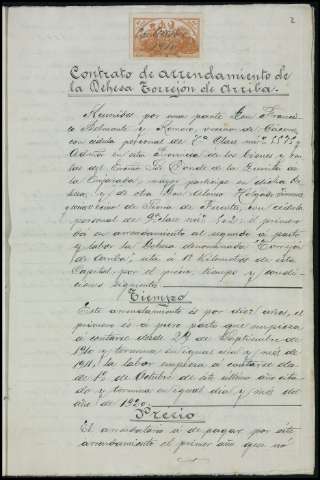 2
Contrato de arrendamiento de
la Dehesa Torrejón de Arriba.
Reunidos por una parte Don Francis
co Belmonte y vecino de Cáceres,
con cédula personal de 7ª clase núm.
Admor. en esta provincia de los bienes y ren
tas del Excmo. Sr. Conde de la
mayor partícipe en dicha De
hesa, y de otra Don
vecino de Sierra de Fuentes, con cédula
personal de 9ª clase núm. el primero
da en arrendamiento al segundo a pasto
y labor la Dehesa denominada Torrejón
de Arriba, sita a Kilómetros de esta
Capital, por el precio, tiempo y condi
ciones siguientes
Tiempo
Este arrendamiento es por diez años, el
primero es a puro pasto que empieza
á contarse desde 29 de Septiembre de
1910 y termina en igual día y mes de
1911, la labor empieza á contarse des
de 1º de Octubre de este último año cita
do y termina en igual día y mes del
año de 1920.
Precio
El arrendatario a de pagar por este
arrendamiento el primer año que no